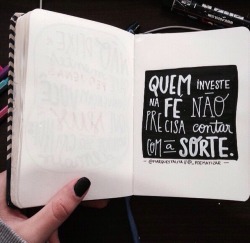 QUEM INVESTE
NA FÉ NÃO
PRECISA contar
COM a SORTE.